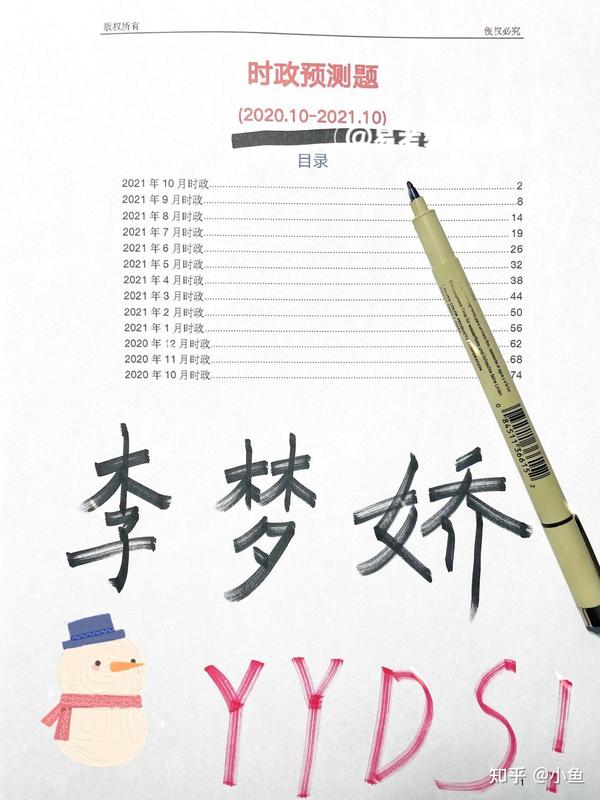 版权所有 侵权必究
时政预测题
(2020.10-2021.10)
目录
2021 年 10 月时政 2
2021 年 9 月时政 8
2021 年 8 月时政 14
2021 年 7 月时政 19
2021 年 6 月时政 26
2021 年 5 月时政 32
2021 年 4 月时政 38
2021 年 3 月时政 44
2021 年 2 月时政 50
2021 年 1 月时政 56
2020 年 12 月时政 62
2020 年 11 月时政 68
2020 年 10 月时政 74
0 84511 36615 2
李梦娇
YYDS!
1
知乎 @小鱼